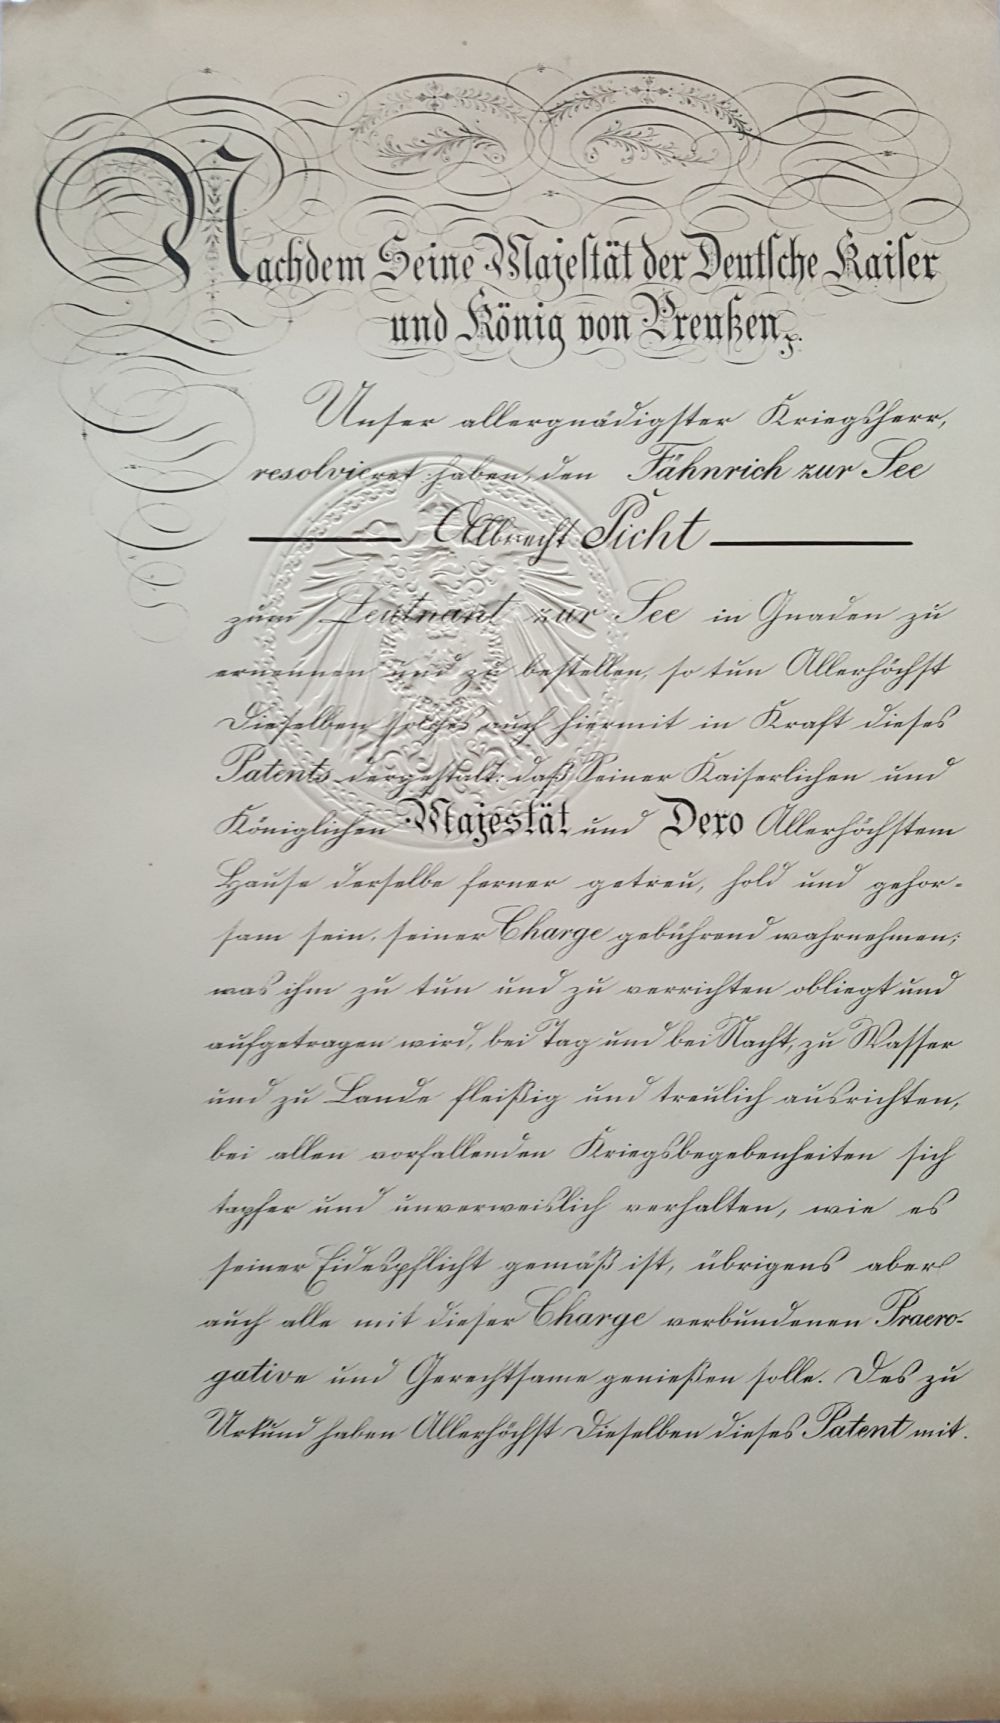 Nachdem Seine Majestät der Deutsche Kaiser
und König von Preußen p.
Unser allergnädigster Kriegsherr,
resolvieret haben, den Fähnrich zur See
Albrecht Picht
zum Leutnant zur See in Gnaden zu
ernennen und zu bestellen, so tun Allerhöchst
Dieselben solches auch hiermit in Kraft dieses
Patents dergestalt: daß Seiner Kaiserlichen und
Königlichen Majestät und Dero Allerhöchstem
Hause derselbe ferner getreu, hold und gehor-
sam sein, seiner Charge gebührend wahrnehmen;
was ihm zu tun und zu verrichten obliegt und
aufgetragen wird, bei Tag und bei Nacht, zu Wasser
und zu Lande fleißig und treulich ausrichten,
bei allen vorfallenden Kriegsbegebenheiten sich
tapfer und unverweislich verhalten, wie es
seiner Eidespflicht gemäß ist, übrigens aber
auch alle mit dieser Charge verbundenen Praero-
gative und Gerechtsame genießen solle. Des zu
Urkund haben Allerhöchst Dieselben dieses Patent mit